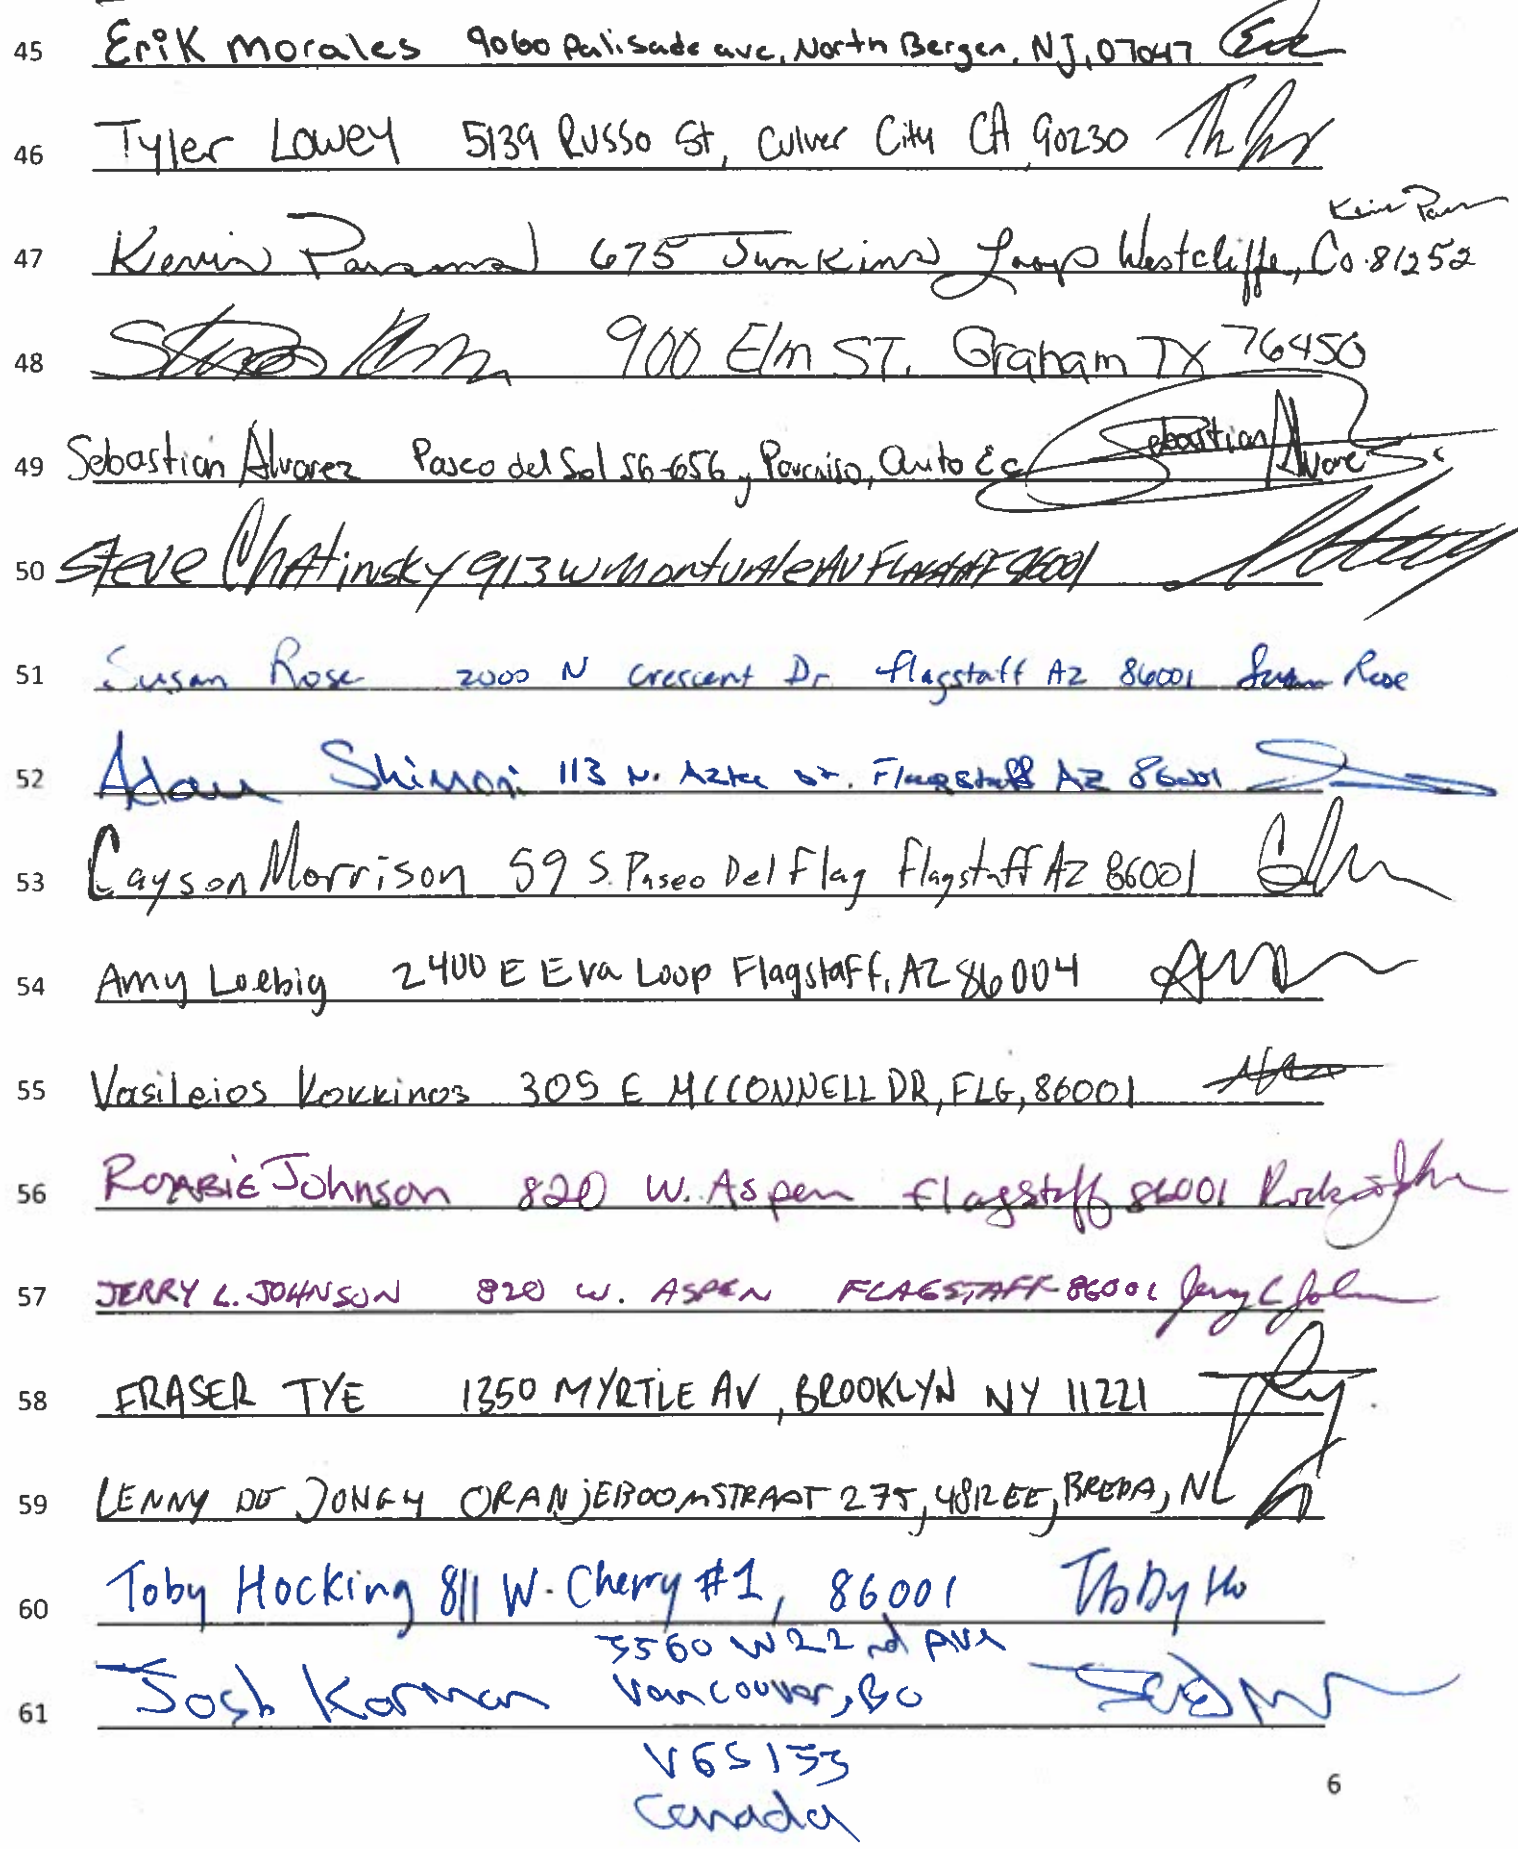 45 Erik Morales 9060 Palisade ave, North Bergen, NJ, 07047
46 Tyler Lowey 5139 Russo St, Culver City CA 90230
47 Kevin 675 Junkins Loop Westcliffe, Co. 81252
48 900 Elm ST. Graham TX 76450
49 Sebastian Alvarez Paseo del Sol S6-656 y Paraiso, Quito Ec Sebastian Alvarez
50 Steve Chatinsky 913 W AV FLAGSTAFF 86001
51 Susan Rose 2000 N Crescent Dr flagstaff AZ 86001 Susan Rose
52 Adam Shimoni 113 N. Aztec St. Flagstaff AZ 86001
53 Cayson Morrison 59 S. Paseo Del Flag Flagstaff AZ 86001
54 Amy Loebig 2400 E Eva Loop Flagstaff, AZ 86004
55 Vasileios Kokkinos 305 E MCCONNELL DR, FLG, 86001
56 Johnson 820 W. Aspen Flagstaff 86001
57 JERRY L. JOHNSON 820 W. ASPEN FLAGSTAFF 86001 Jerry L John
58 FRASER TYE 1350 MYRTLE AV, BROOKLYN NY 11221
59 LENNY DE JONGH ORANJEBOOMSTRAAT 275, 4812EE, BREDA, NL
60 Toby Hocking 811 W. Cherry #1, 86001 Toby Ho
3560 W 22nd Ave
61 Josh Korman Vancouver, BC
V6S 1J3
Canada
6